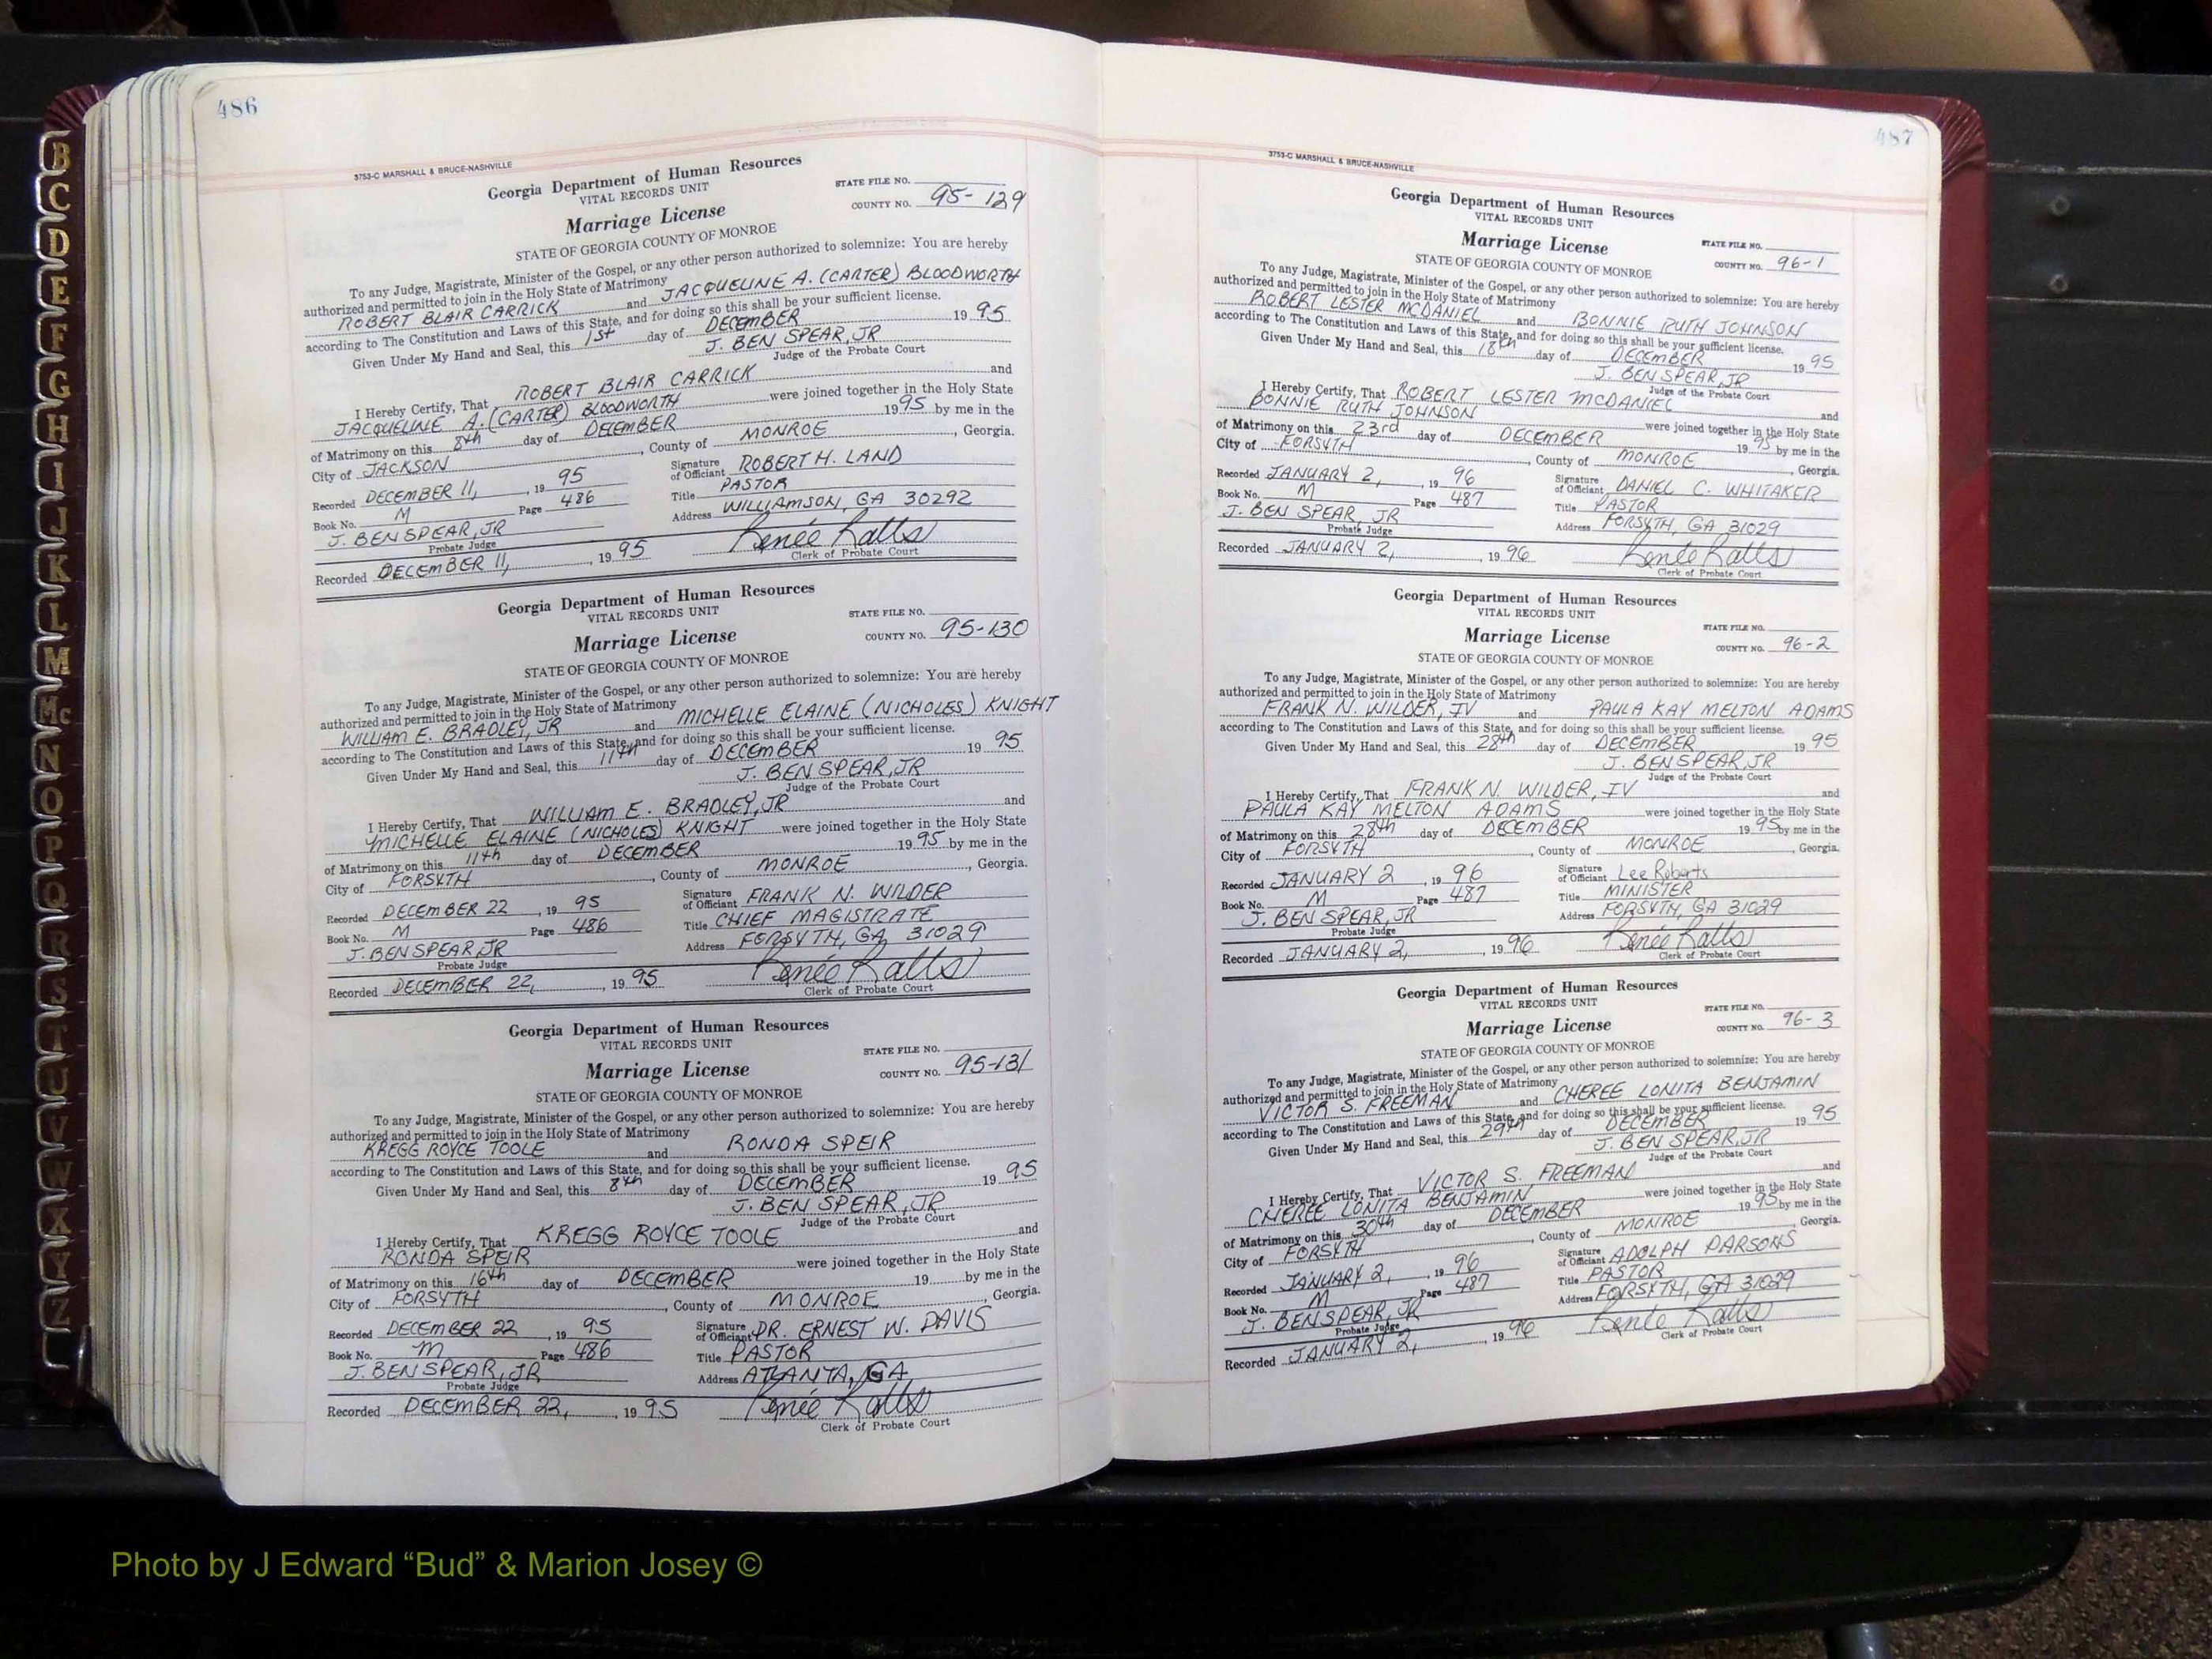 B
C
D
E
F
G
H
I
J
K
L
M
Mc
N
O
P
Q
R
S
T
U
V
W
X
Y
Z
486
3753-C MARSHALL & BRUCE-NASHVILLE
Georgia Department of Human Resources
VITAL RECORDS UNIT
STATE FILE NO.
Marriage License
COUNTY NO. 95-129
STATE OF GEORGIA COUNTY OF MONROE
To any Judge, Magistrate, Minister of the Gospel, or any other person authorized to solemnize: You are hereby
authorized and permitted to join in the Holy State of Matrimony
ROBERT BLAIR CARRICK and JACQUELINE A. (CARTER) BLOODWORTH
according to The Constitution and Laws of this State, and for doing so this shall be your sufficient license.
Given Under My Hand and Seal, this 1st day of DECEMBER 19 95
J. BEN SPEAR, JR
Judge of the Probate Court
I Hereby Certify, That ROBERT BLAIR CARRICK and
JACQUELINE A. (CARTER) BLOODWORTH were joined together in the Holy State
of Matrimony on this 8th day of DECEMBER 19 95 by me in the
City of JACKSON, County of MONROE, Georgia.
Recorded DECEMBER 11, 19 95 Signature of Officiant ROBERT H. LAND
Book No. M Page 486 Title PASTOR
J. BEN SPEAR, JR Address WILLIAMSON, GA 30292
Probate Judge
Recorded DECEMBER 11, 19 95 Renée Ralls
Clerk of Probate Court
Georgia Department of Human Resources
VITAL RECORDS UNIT
STATE FILE NO.
Marriage License
COUNTY NO. 95-130
STATE OF GEORGIA COUNTY OF MONROE
To any Judge, Magistrate, Minister of the Gospel, or any other person authorized to solemnize: You are hereby
authorized and permitted to join in the Holy State of Matrimony
WILLIAM E. BRADLEY, JR and MICHELLE ELAINE (NICHOLES) KNIGHT
according to The Constitution and Laws of this State, and for doing so this shall be your sufficient license.
Given Under My Hand and Seal, this 11th day of DECEMBER 19 95
J. BEN SPEAR, JR
Judge of the Probate Court
I Hereby Certify, That WILLIAM E. BRADLEY, JR and
MICHELLE ELAINE (NICHOLES) KNIGHT were joined together in the Holy State
of Matrimony on this 11th day of DECEMBER 19 95 by me in the
City of FORSYTH, County of MONROE, Georgia.
Recorded DECEMBER 22, 19 95 Signature of Officiant FRANK N. WILDER
Book No. M Page 486 Title CHIEF MAGISTRATE
J. BEN SPEAR, JR Address FORSYTH, GA 31029
Probate Judge
Recorded DECEMBER 22, 19 95 Renée Ralls
Clerk of Probate Court
Georgia Department of Human Resources
VITAL RECORDS UNIT
STATE FILE NO.
Marriage License
COUNTY NO. 95-131
STATE OF GEORGIA COUNTY OF MONROE
To any Judge, Magistrate, Minister of the Gospel, or any other person authorized to solemnize: You are hereby
authorized and permitted to join in the Holy State of Matrimony
KREGG ROYCE TOOLE and RONDA SPEIR
according to The Constitution and Laws of this State, and for doing so this shall be your sufficient license.
Given Under My Hand and Seal, this 8th day of DECEMBER 19 95
J. BEN SPEAR, JR
Judge of the Probate Court
I Hereby Certify, That KREGG ROYCE TOOLE and
RONDA SPEIR were joined together in the Holy State
of Matrimony on this 16th day of DECEMBER 19 by me in the
City of FORSYTH, County of MONROE, Georgia.
Recorded DECEMBER 22, 19 95 Signature of Officiant DR. ERNEST W. DAVIS
Book No. M Page 486 Title PASTOR
J. BEN SPEAR, JR Address ATLANTA, GA
Probate Judge
Recorded DECEMBER 22, 19 95 Renée Ralls
Clerk of Probate Court
487
3753-C MARSHALL & BRUCE-NASHVILLE
Georgia Department of Human Resources
VITAL RECORDS UNIT
Marriage License
STATE FILE NO.
STATE OF GEORGIA COUNTY OF MONROE
COUNTY NO. 96-1
To any Judge, Magistrate, Minister of the Gospel, or any other person authorized to solemnize: You are hereby
authorized and permitted to join in the Holy State of Matrimony
ROBERT LESTER MCDANIEL and BONNIE RUTH JOHNSON
according to The Constitution and Laws of this State, and for doing so this shall be your sufficient license.
Given Under My Hand and Seal, this 18th day of DECEMBER 19 95
J. BEN SPEAR, JR
Judge of the Probate Court
I Hereby Certify, That ROBERT LESTER MCDANIEL and
BONNIE RUTH JOHNSON were joined together in the Holy State
of Matrimony on this 23rd day of DECEMBER 19 95 by me in the
City of FORSYTH, County of MONROE, Georgia.
Recorded JANUARY 2, 19 96 Signature of Officiant DANIEL C. WHITAKER
Book No. M Page 487 Title PASTOR
J. BEN SPEAR, JR Address FORSYTH, GA 31029
Probate Judge
Recorded JANUARY 2, 19 96 Renée Ralls
Clerk of Probate Court
Georgia Department of Human Resources
VITAL RECORDS UNIT
STATE FILE NO.
Marriage License
COUNTY NO. 96-2
STATE OF GEORGIA COUNTY OF MONROE
To any Judge, Magistrate, Minister of the Gospel, or any other person authorized to solemnize: You are hereby
authorized and permitted to join in the Holy State of Matrimony
FRANK N. WILDER, IV and PAULA KAY MELTON ADAMS
according to The Constitution and Laws of this State, and for doing so this shall be your sufficient license.
Given Under My Hand and Seal, this 28th day of DECEMBER 19 95
J. BEN SPEAR, JR
Judge of the Probate Court
I Hereby Certify, That FRANK N. WILDER, IV and
PAULA KAY MELTON ADAMS were joined together in the Holy State
of Matrimony on this 28th day of DECEMBER 19 95 by me in the
City of FORSYTH, County of MONROE, Georgia.
Recorded JANUARY 2, 19 96 Signature of Officiant Lee Roberts
Book No. M Page 487 Title MINISTER
J. BEN SPEAR, JR Address FORSYTH, GA 31029
Probate Judge
Recorded JANUARY 2, 19 96 Renée Ralls
Clerk of Probate Court
Georgia Department of Human Resources
VITAL RECORDS UNIT
STATE FILE NO.
Marriage License
COUNTY NO. 96-3
STATE OF GEORGIA COUNTY OF MONROE
To any Judge, Magistrate, Minister of the Gospel, or any other person authorized to solemnize: You are hereby
authorized and permitted to join in the Holy State of Matrimony
VICTOR S. FREEMAN and CHEREE LONITA BENJAMIN
according to The Constitution and Laws of this State, and for doing so this shall be your sufficient license.
Given Under My Hand and Seal, this 29th day of DECEMBER 19 95
J. BEN SPEAR, JR
Judge of the Probate Court
I Hereby Certify, That VICTOR S. FREEMAN and
CHEREE LONITA BENJAMIN were joined together in the Holy State
of Matrimony on this 30th day of DECEMBER 19 95 by me in the
City of FORSYTH, County of MONROE, Georgia.
Recorded JANUARY 2, 19 96 Signature of Officiant ADOLPH PARSONS
Book No. M Page 487 Title PASTOR
J. BEN SPEAR, JR Address FORSYTH, GA 31029
Probate Judge
Recorded JANUARY 2, 19 96 Renée Ralls
Clerk of Probate Court
Photo by J Edward “Bud” & Marion Josey ©